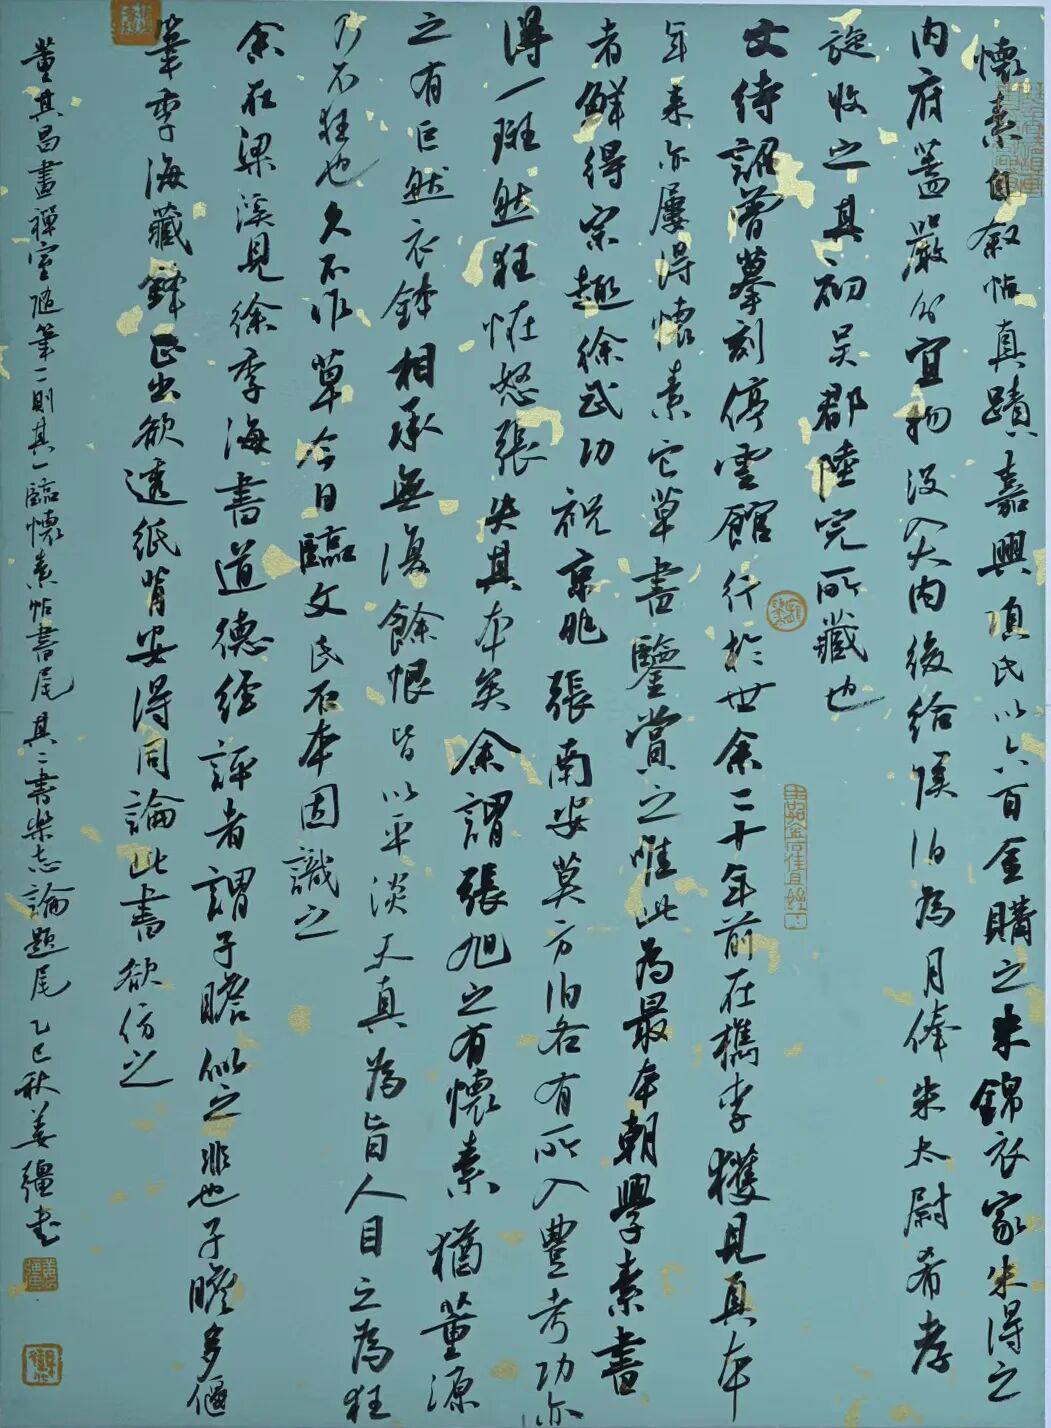 懷素自敘帖真蹟嘉興項氏以六百金購之朱錦衣家朱得之
內府蓋嚴分宜物沒入大內後給侯伯為月俸朱太尉希孝
旋收之其初吳郡陸完所藏也
文待詔曾摹刻停雲館行於世余二十年前在檇李獲見真本
年來亦屢得懷素它草書鑒賞之唯此為最本朝學素書
者鮮得宗趣徐武功祝京兆張南安莫方伯各有所入豐考功亦
得一斑然狂怪怒張失其本矣余謂張旭之有懷素猶董源
之有巨然衣鉢相承無復餘恨皆以平淡天真為旨人目之為狂
乃不狂也久不作草今日臨文氏石本因識之
余在梁溪見徐季海書道德經評者謂子瞻似之非也子瞻多偃
筆季海藏鋒正出欲透紙背安得同論此書欲仿之
董其昌畫禪室隨筆二則其一臨懷素帖書尾其二書樂志論題尾 乙巳秋姜疆書